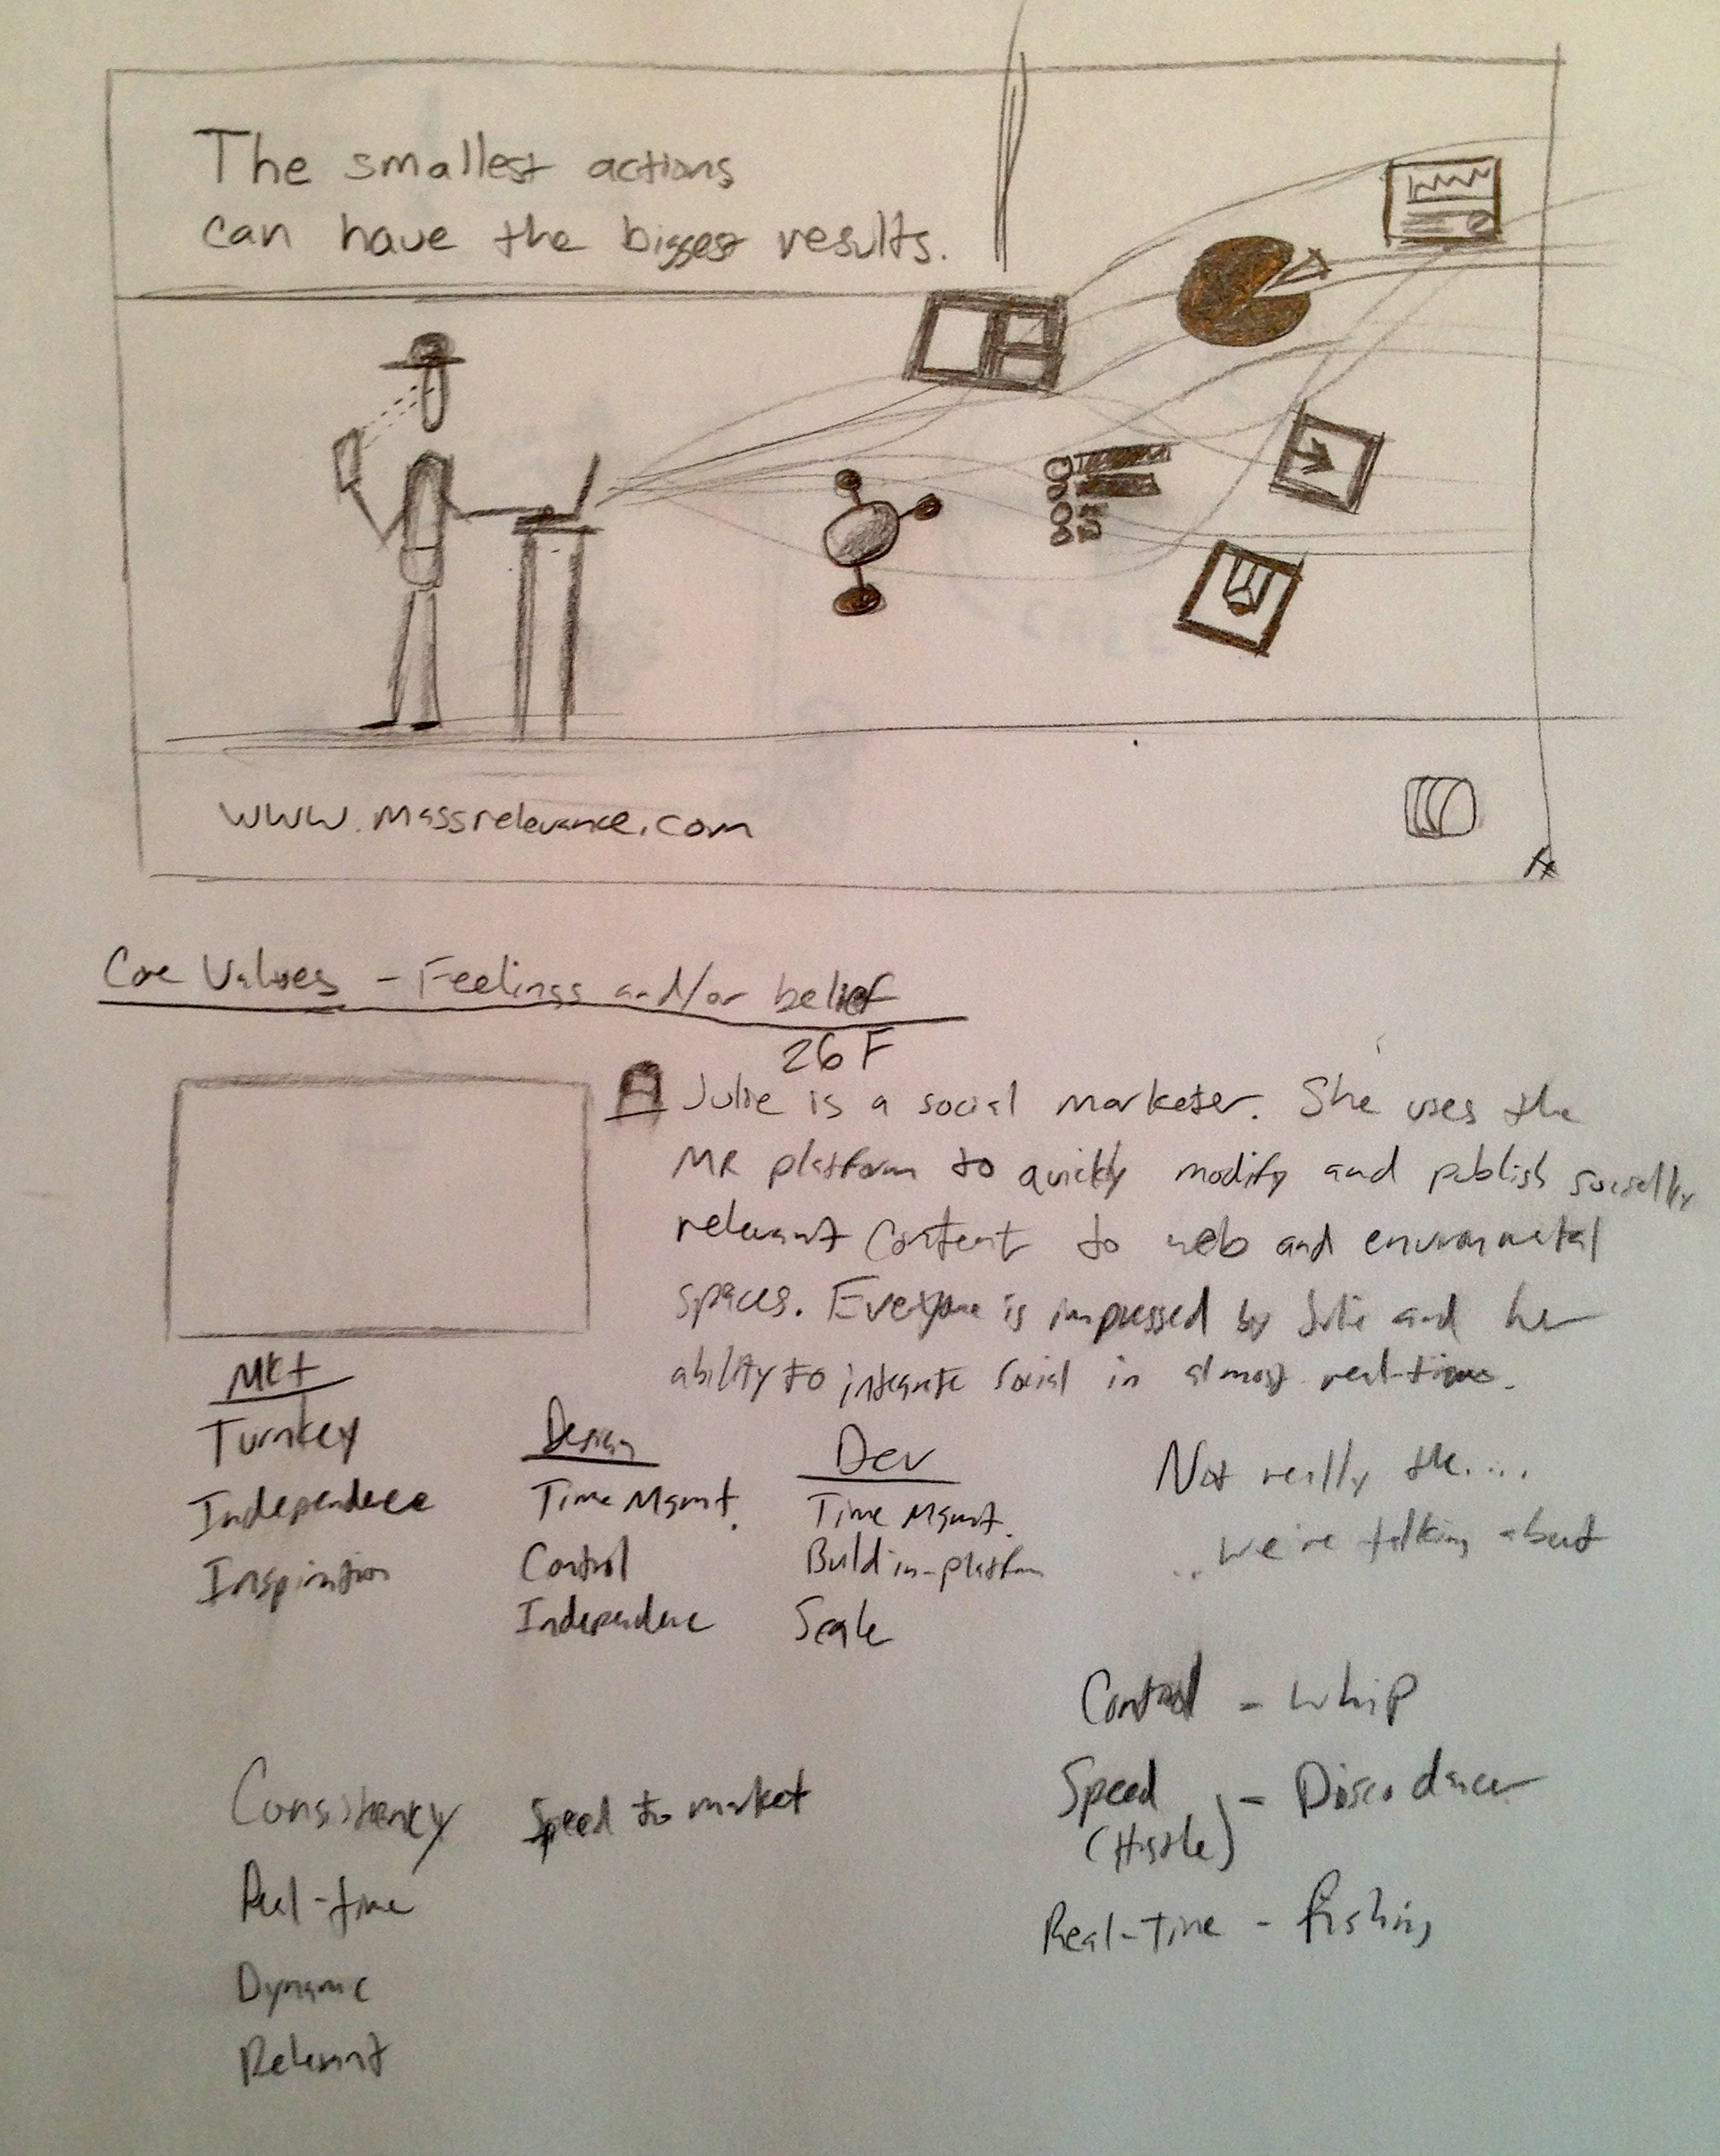 The smallest actions
can have the biggest results.
www.massrelevance.com
Core Values - Feelings and/or belief
26 F
Julie is a social marketer. She uses the
MR platform to quickly modify and publish socially
relevant content to web and environmetal
spaces. Everyone is impressed by Julie and her
ability to integrate social in almost real-time.
Mkt
Turnkey
Independence
Inspiration
Design
Time Mgmt.
Control
Independence
Dev
Time Mgmt.
Build in-platform
Scale
Not really the....
..we're talking about
Control - Whip
Speed - Disco dancer
(Hustle)
Real-Time - fishing
Consistency
Real-time
Dynamic
Relevant
Speed to market